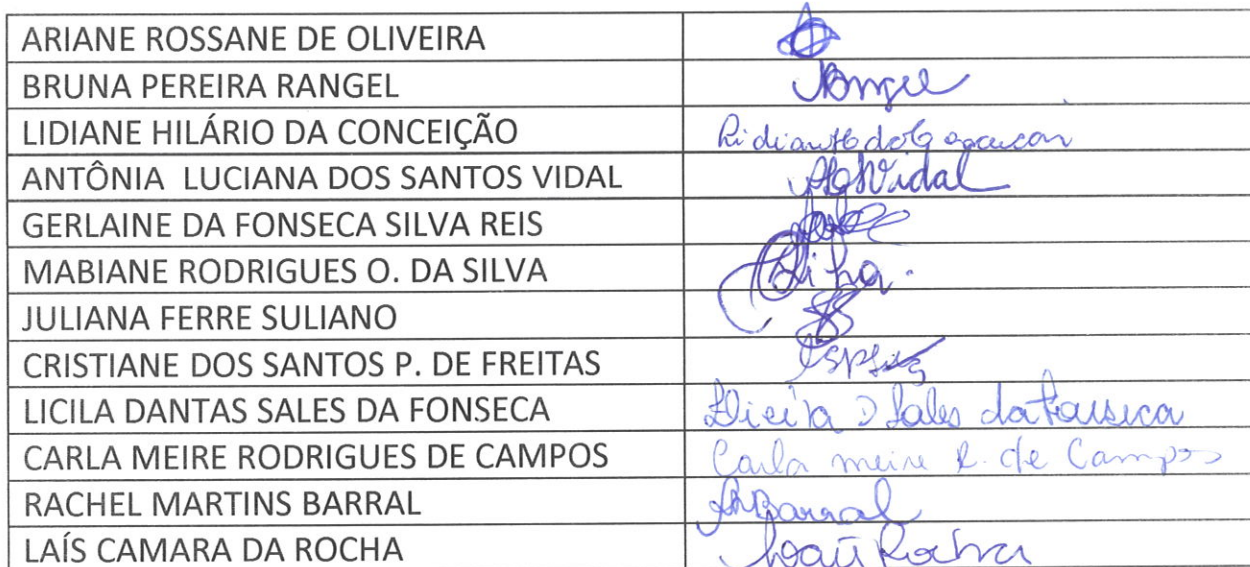 ARIANE ROSSANE DE OLIVEIRA
BRUNA PEREIRA RANGEL Rangel
LIDIANE HILÁRIO DA CONCEIÇÃO
ANTÔNIA LUCIANA DOS SANTOS VIDAL Vidal
GERLAINE DA FONSECA SILVA REIS
MABIANE RODRIGUES O. DA SILVA
JULIANA FERRE SULIANO
CRISTIANE DOS SANTOS P. DE FREITAS
LICILA DANTAS SALES DA FONSECA D Sales da Fonseca
CARLA MEIRE RODRIGUES DE CAMPOS Carla meire R. de Campos
RACHEL MARTINS BARRAL RMBarral
LAÍS CAMARA DA ROCHA Rocha